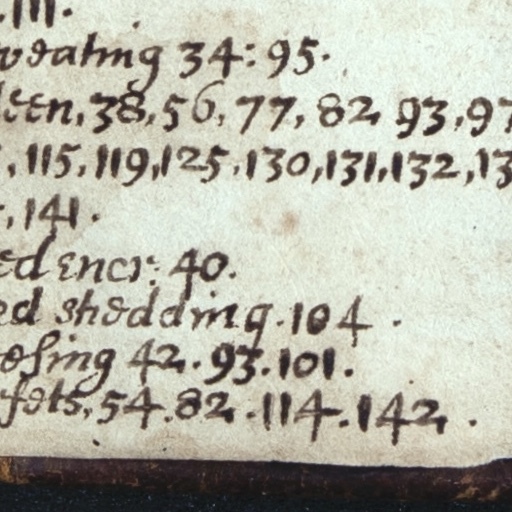 .111.
veating 34: 95.
leen, 38, 56, 77, 82, 93, 97
, 115, 119, 125, 130, 131, 132, 13
, 141.
ed encr: 40.
ed shedding. 104.
esing 42. 93. 101.
fets, 54. 82. 114. 142.